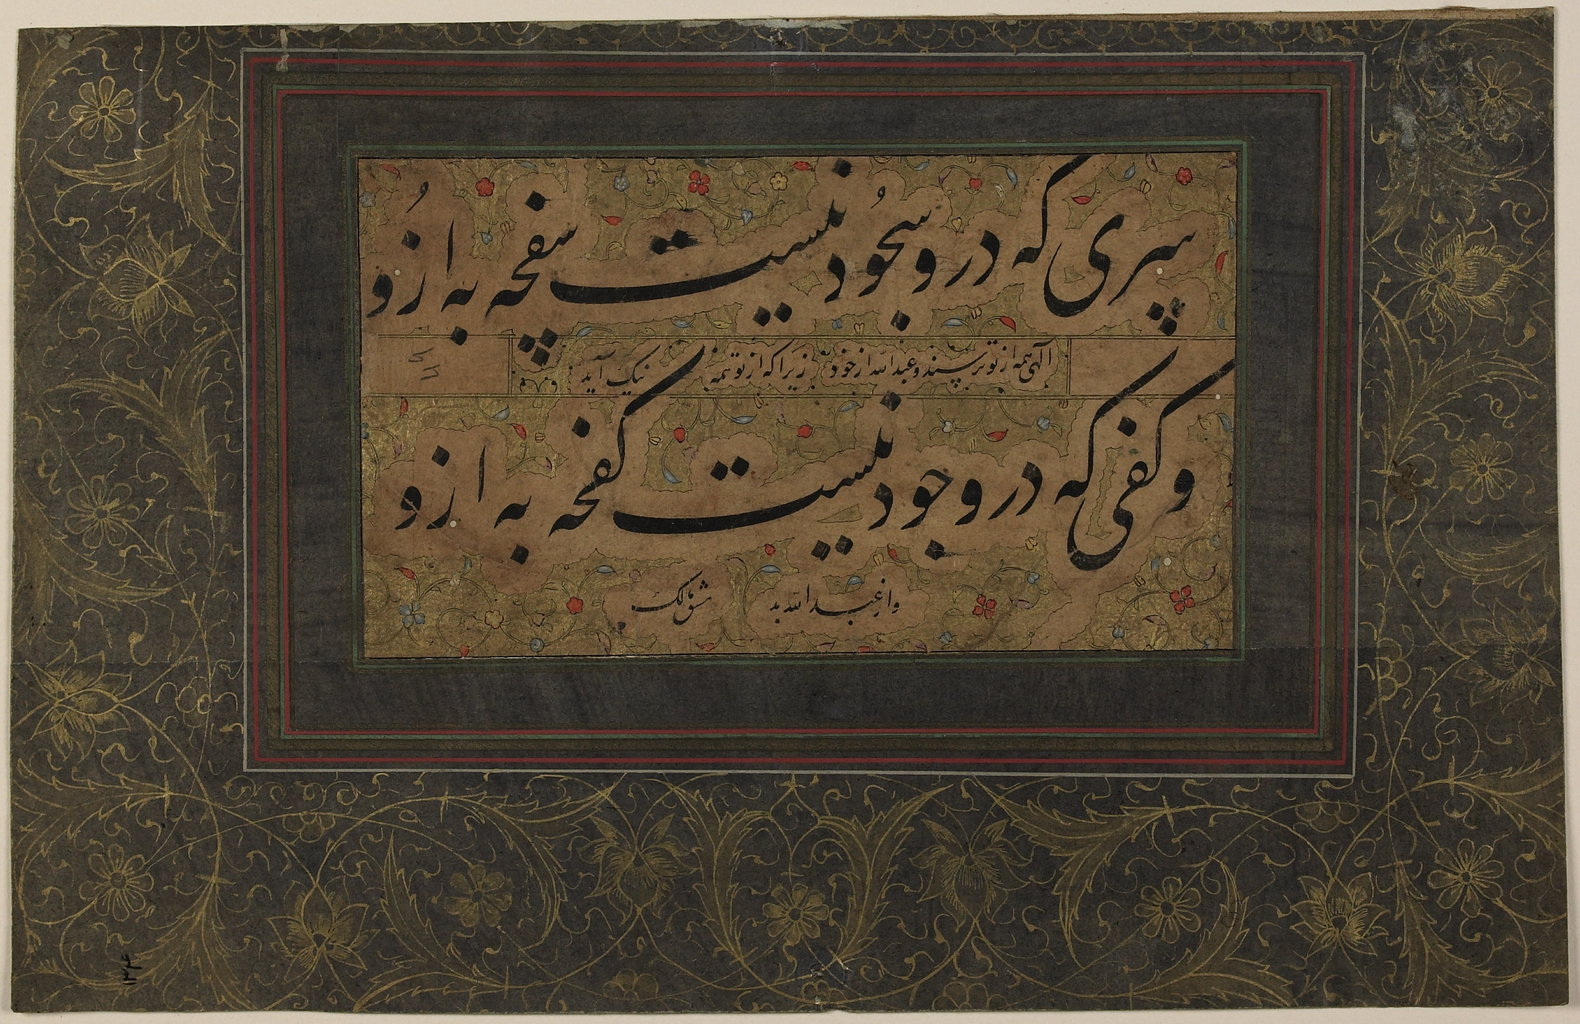 پیری که درو سجود نیست سفحه به ازو
الهی همه از تو ترسند و عبدالله از خود زیرا که از تو همه نیک آید
و کفی که در وجود نیست کفحه به ازو
و از عبدالله بد
مشق مالک
۱۳۴